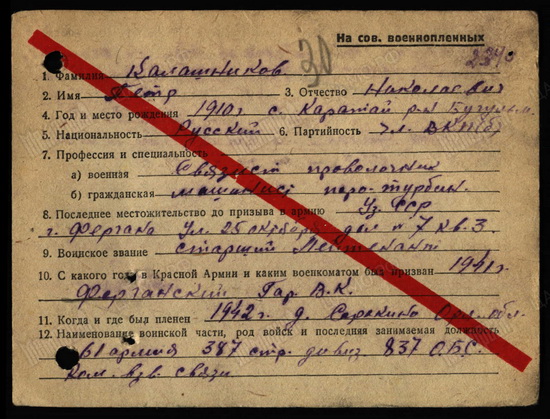 На сов. военнопленных
30
1. Фамилия Калашников
2. Имя Петр 3. Отчество Николаевич
4. Год и место рождения 1910 г с. Каратай р-н
5. Национальность Русский 6. Партийность чл. ВКП(б)
7. Профессия и специальность
а) военная Связист проволочник
б) гражданская машинист паро-турбин.
8. Последнее местожительство до призыва в армию Уз. ССР
г. Фергана Ул. 25 октября дом № 7 кв. 3
9. Воинское звание старший Лейтенант
10. С какого года в Красной Армии и каким военкоматом был призван 1941 г
Ферганский Гор В.К.
11. Когда и где был пленен 1942 г д. Сорокино обл.
12. Наименование воинской части, род войск и последняя занимаемая должность
61 армия 387 стр. дивиз 837 ОБС.
Ком. взв. связи